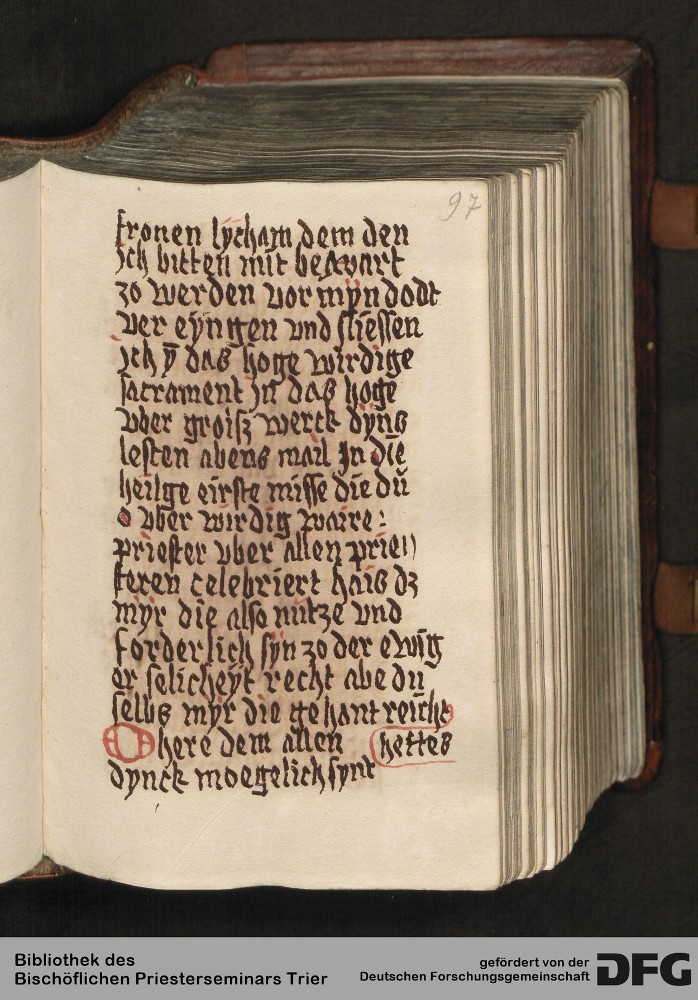 97
fronen lycham dem den
Jch bitten mit bewart
zo werden vor mÿn dodt
ver eyngen vnd sliessen
Jch ỹ das hoge wirdige
sacrament jn das hoge
vber groisz werck dyns
lesten abens mail Jn die
heilge eirste misse die dū
o vber wirdig waire :
priester vber allen prie
steren celebriert hais dz
myr die also nutze vnd
forderlich syn zo der ewig
er selicheyt recht abe du
selbs myr die gehant reicht
O here dem allen hettes
dynck moegelich synt
Bibliothek des
Bischöflichen Priesterseminars Trier
gefördert von der
Deutschen Forschungsgemeinschaft
DFG